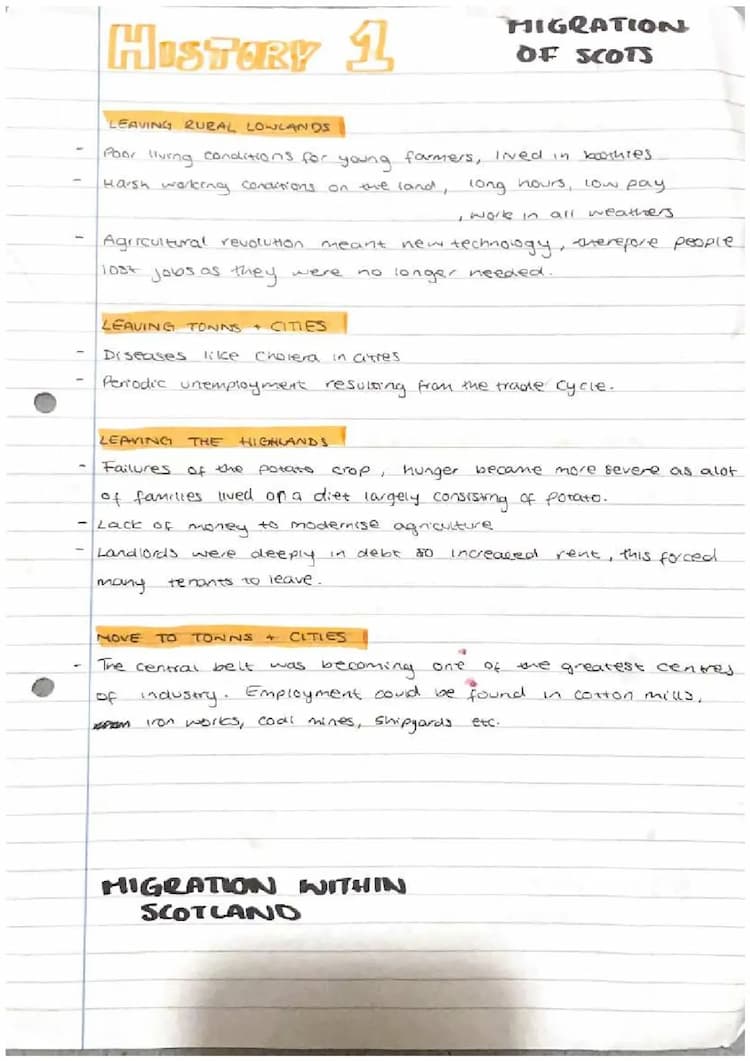 HISTORY 1
MIGRATION
OF SCOTS
LEAVING RURAL LOWLANDS
- Poor living conditions for young farmers, lived in bothies
- Harsh working conditions on the land, long hours, low pay
, work in all weathers
- Agricultural revolution meant new technology, therefore people
lost jobs as they were no longer needed.
LEAVING TOWNS + CITIES
- Diseases like cholera in cities
- Periodic unemployment resulting from the trade cycle.
LEAVING THE HIGHLANDS
- Failures of the potato crop, hunger became more severe as alot
of families lived on a diet largely consisting of potato.
- Lack of money to modernise agriculture
- Landlords were deeply in debt so increased rent, this forced
many tenants to leave.
MOVE TO TOWNS + CITIES
- The central belt was becoming one of the greatest centres
of industry. Employment could be found in cotton mills,
iron works, coal mines, shipyards etc.
MIGRATION WITHIN
SCOTLAND